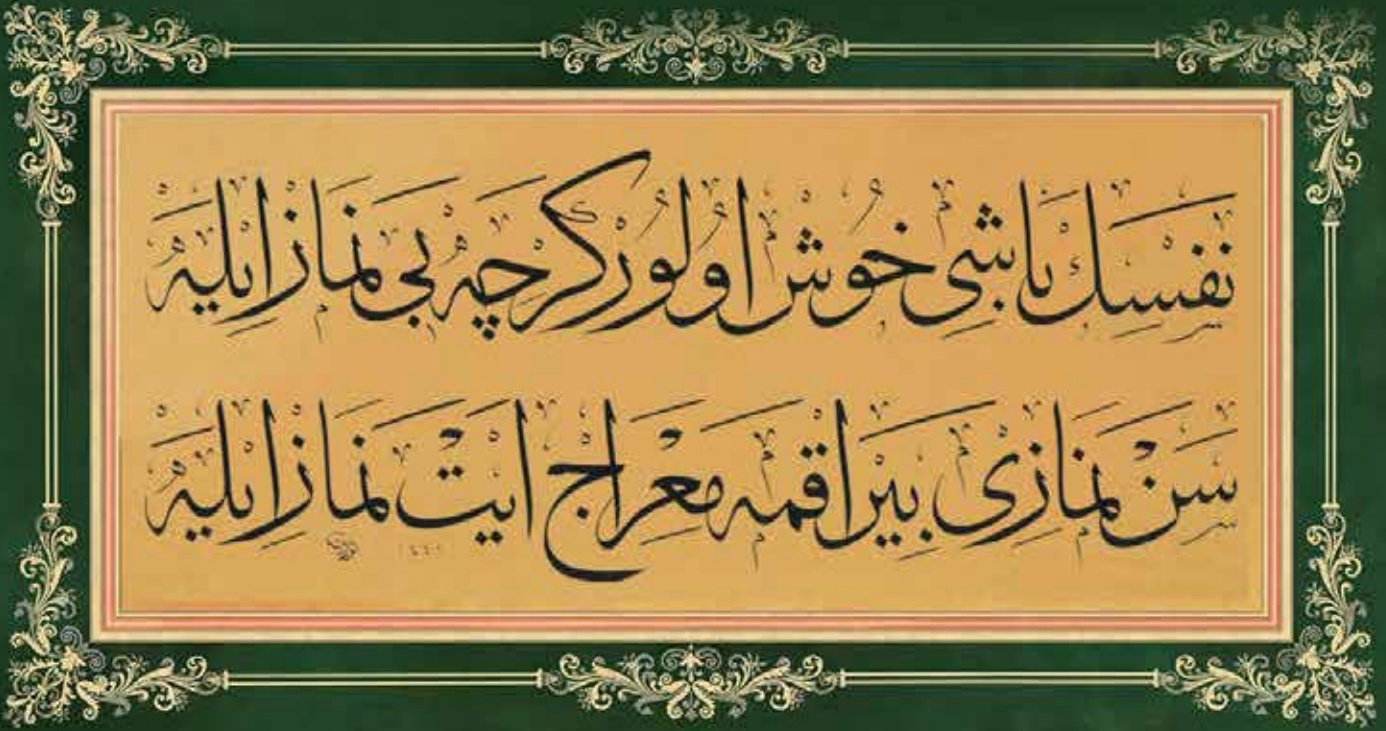 نفسك باشى خوش اولور كرچه بى نماز ايله
سن نمازى بيراقمه معراج ايت نماز ايله